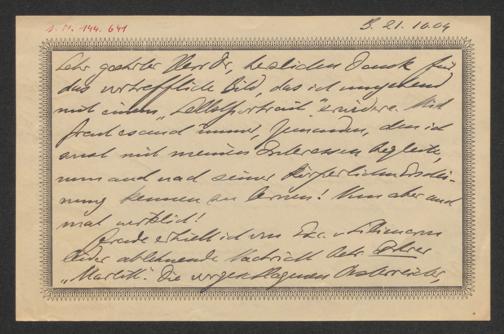 I.N. 144.641
B. 21.10.09
Sehr geehrter Herr Dr, herzlichen Dank für
das vortreffliche Bild, das ich umgehend
mit einem „Selbstportrait" erwidere. Mich
freut es immer, Jemanden, den ich
sonst mit meinen Interessen begleite,
nun auch nach seiner körperlichen Erschei-
nung kennen zu lernen! Nun aber auch
mal wirklich!
Gerade erhielt ich von Exc. v.
leider ablehnende Nachricht betr. Ihrer
„ Die Oesterreicher,